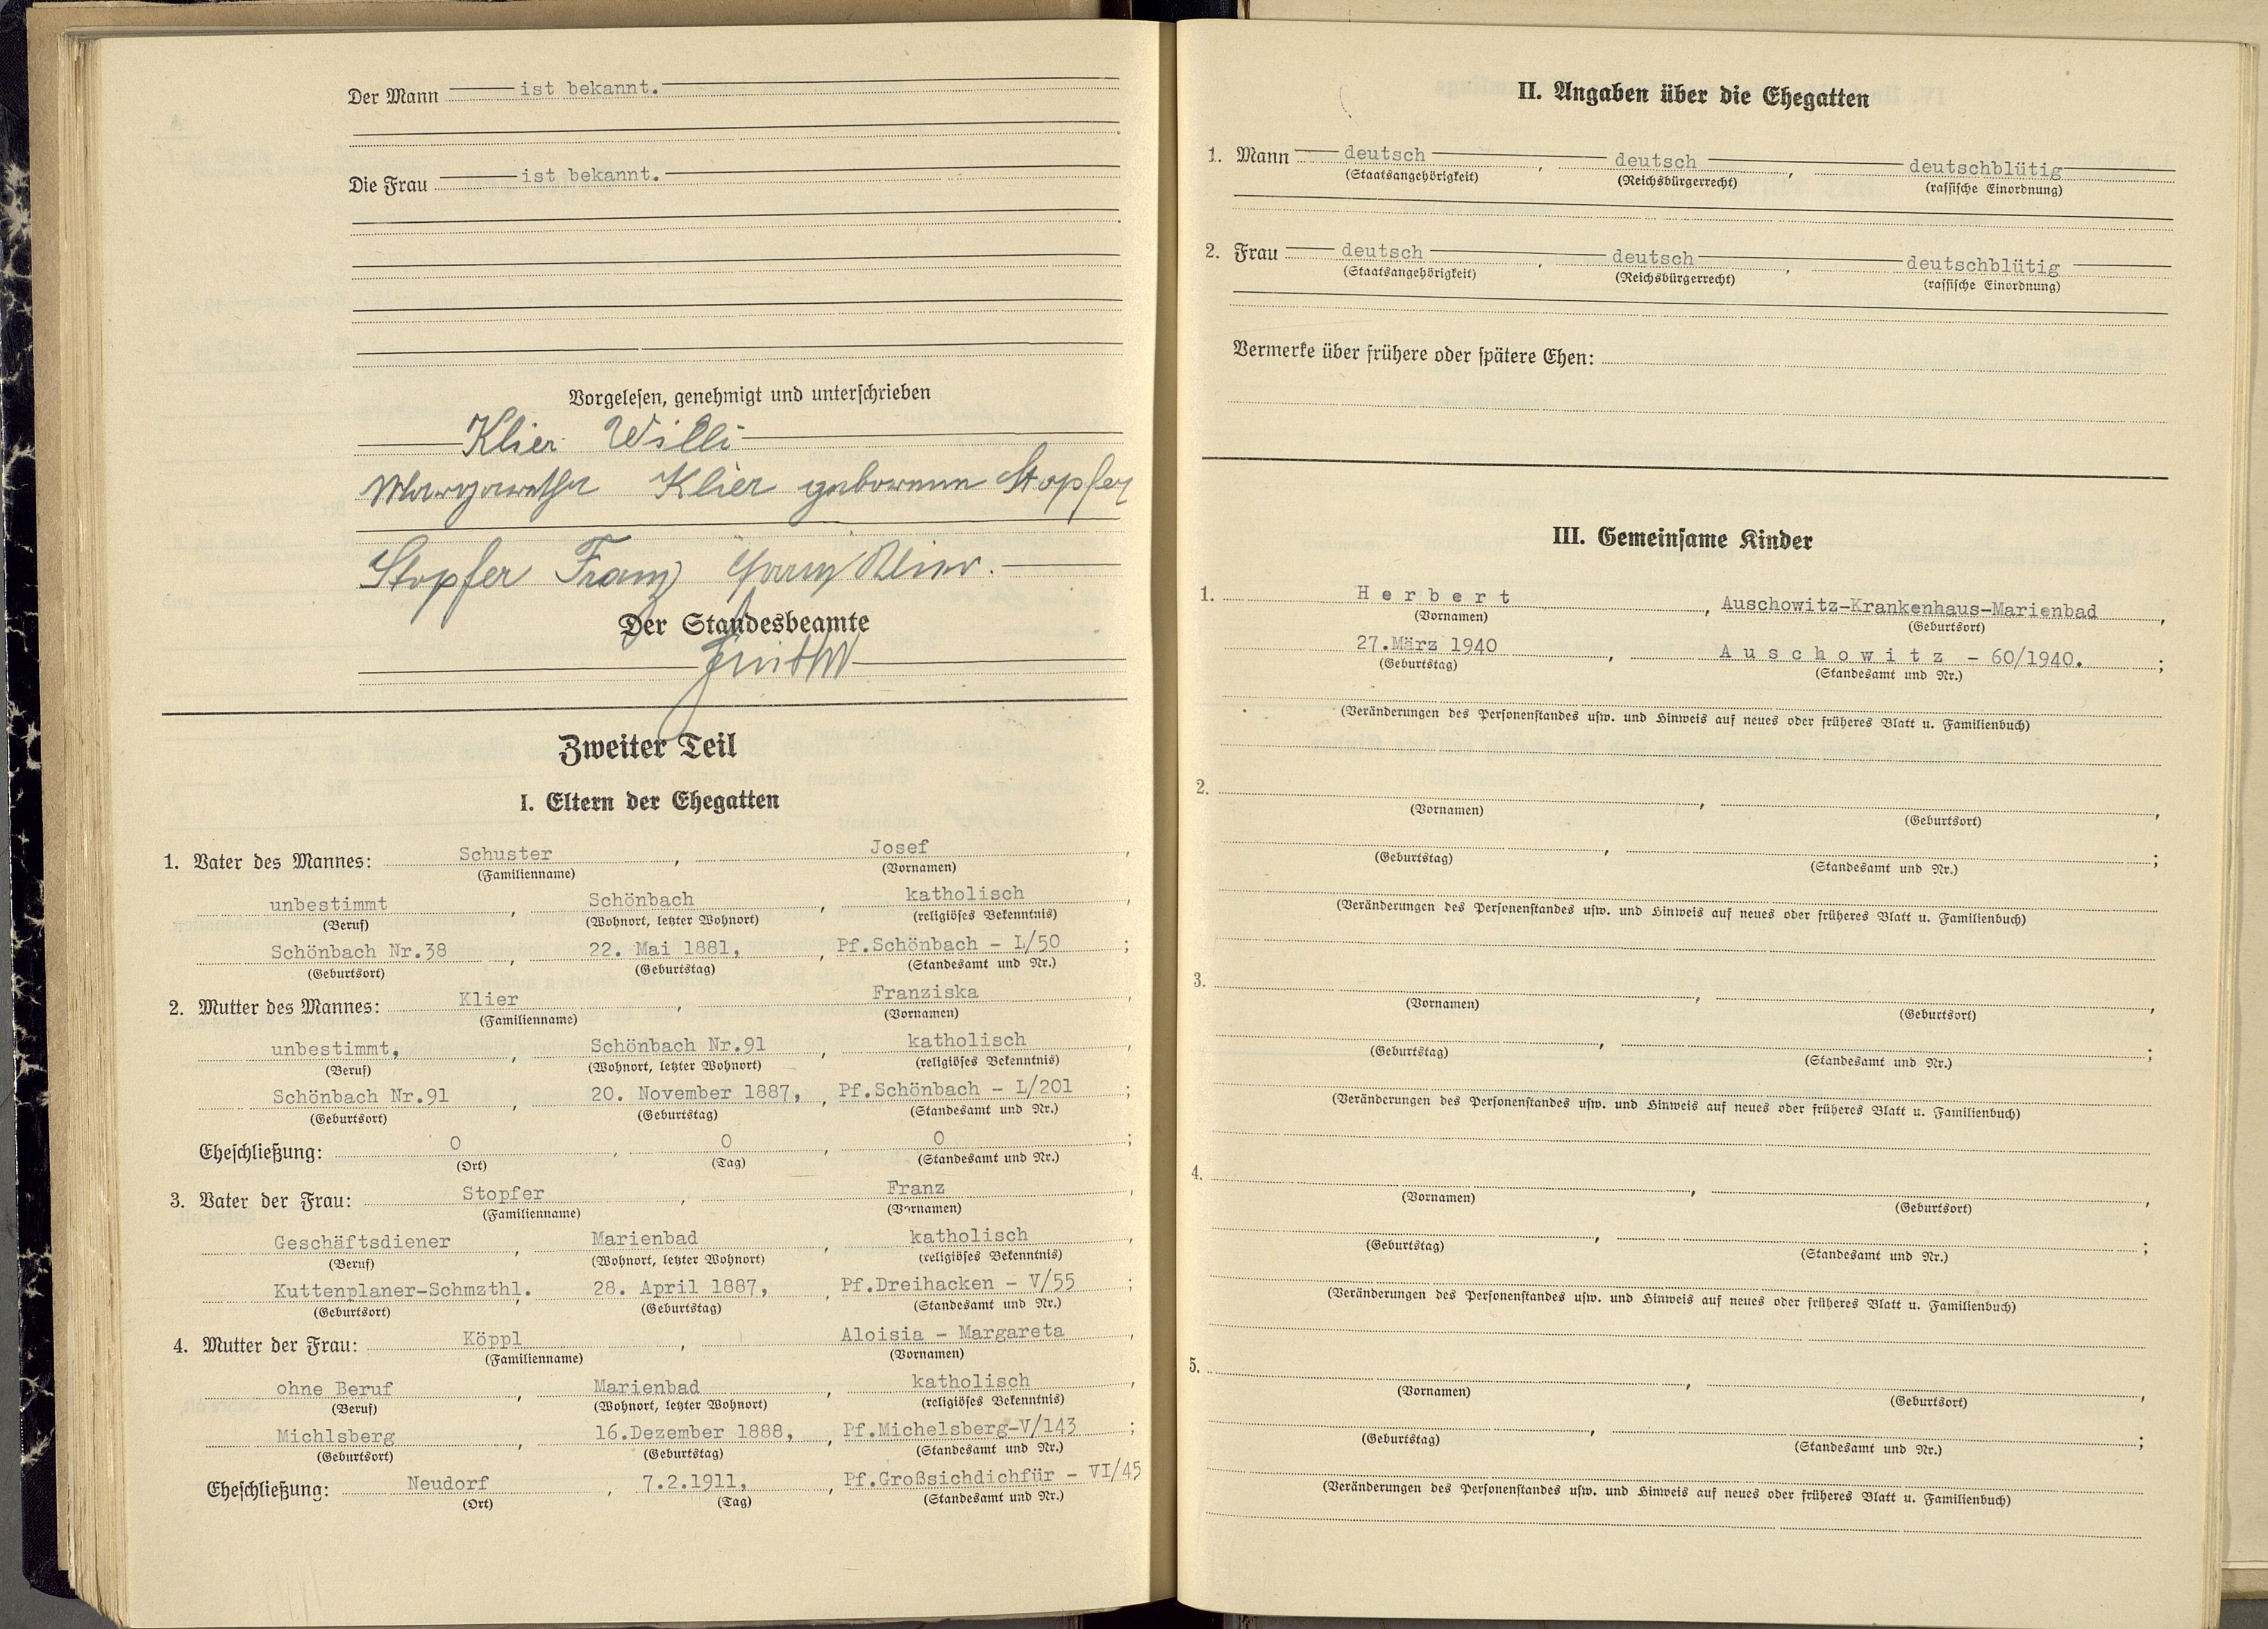 Der Mann ist bekannt.
Die Frau ist bekannt.
Vorgelesen, genehmigt und unterschrieben
Klier Willi
Margarethe Klier geborenen Stopfer
Stopfer Franz
Der Standesbeamte
Zweiter Teil
I. Eltern der Ehegatten
1. Vater des Mannes: Schuster, Josef,
(Familienname) (Vornamen)
unbestimmt, Schönbach, katholisch,
(Beruf) (Wohnort, letzter Wohnort) (religiöses Bekenntnis)
Schönbach Nr.38, 22. Mai 1881,, Pf.Schönbach - L/50;
(Geburtsort) (Geburtstag) (Standesamt und Nr.)
2. Mutter des Mannes: Klier, Franziska,
(Familienname) (Vornamen)
unbestimmt,, Schönbach Nr.91, katholisch,
(Beruf) (Wohnort, letzter Wohnort) (religiöses Bekenntnis)
Schönbach Nr.91, 20. November 1887,, Pf.Schönbach - L/201;
(Geburtsort) (Geburtstag) (Standesamt und Nr.)
Eheschließung: O, O, O;
(Ort) (Tag) (Standesamt und Nr.)
3. Vater der Frau: Stopfer, Franz,
(Familienname) (Vornamen)
Geschäftsdiener, Marienbad, katholisch,
(Beruf) (Wohnort, letzter Wohnort) (religiöses Bekenntnis)
Kuttenplaner-Schmzthl., 28. April 1887,, Pf.Dreihacken - V/55;
(Geburtsort) (Geburtstag) (Standesamt und Nr.)
4. Mutter der Frau: Köppl, Aloisia - Margareta,
(Familienname) (Vornamen)
ohne Beruf, Marienbad, katholisch,
(Beruf) (Wohnort, letzter Wohnort) (religiöses Bekenntnis)
Michlsberg, 16.Dezember 1888,, Pf.Michelsberg-V/143;
(Geburtsort) (Geburtstag) (Standesamt und Nr.)
Eheschließung: Neudorf, 7.2.1911,, Pf.Großsichdichfür - VI/45
(Ort) (Tag) (Standesamt und Nr.)
II. Angaben über die Ehegatten
1. Mann deutsch, deutsch, deutschblütig
(Staatsangehörigkeit) (Reichsbürgerrecht) (rassische Einordnung)
2. Frau deutsch, deutsch, deutschblütig
(Staatsangehörigkeit) (Reichsbürgerrecht) (rassische Einordnung)
Vermerke über frühere oder spätere Ehen:
III. Gemeinsame Kinder
1. Herbert, Auschowitz-Krankenhaus-Marienbad,
(Vornamen) (Geburtsort)
27.März 1940, Auschowitz - 60/1940.;
(Geburtstag) (Standesamt und Nr.)
(Veränderungen des Personenstandes usw. und Hinweis auf neues oder früheres Blatt u. Familienbuch)
2. , ,
(Vornamen) (Geburtsort)
, ;
(Geburtstag) (Standesamt und Nr.)
(Veränderungen des Personenstandes usw. und Hinweis auf neues oder früheres Blatt u. Familienbuch)
3. , ,
(Vornamen) (Geburtsort)
, ;
(Geburtstag) (Standesamt und Nr.)
(Veränderungen des Personenstandes usw. und Hinweis auf neues oder früheres Blatt u. Familienbuch)
4. , ,
(Vornamen) (Geburtsort)
, ;
(Geburtstag) (Standesamt und Nr.)
(Veränderungen des Personenstandes usw. und Hinweis auf neues oder früheres Blatt u. Familienbuch)
5. , ,
(Vornamen) (Geburtsort)
, ;
(Geburtstag) (Standesamt und Nr.)
(Veränderungen des Personenstandes usw. und Hinweis auf neues oder früheres Blatt u. Familienbuch)